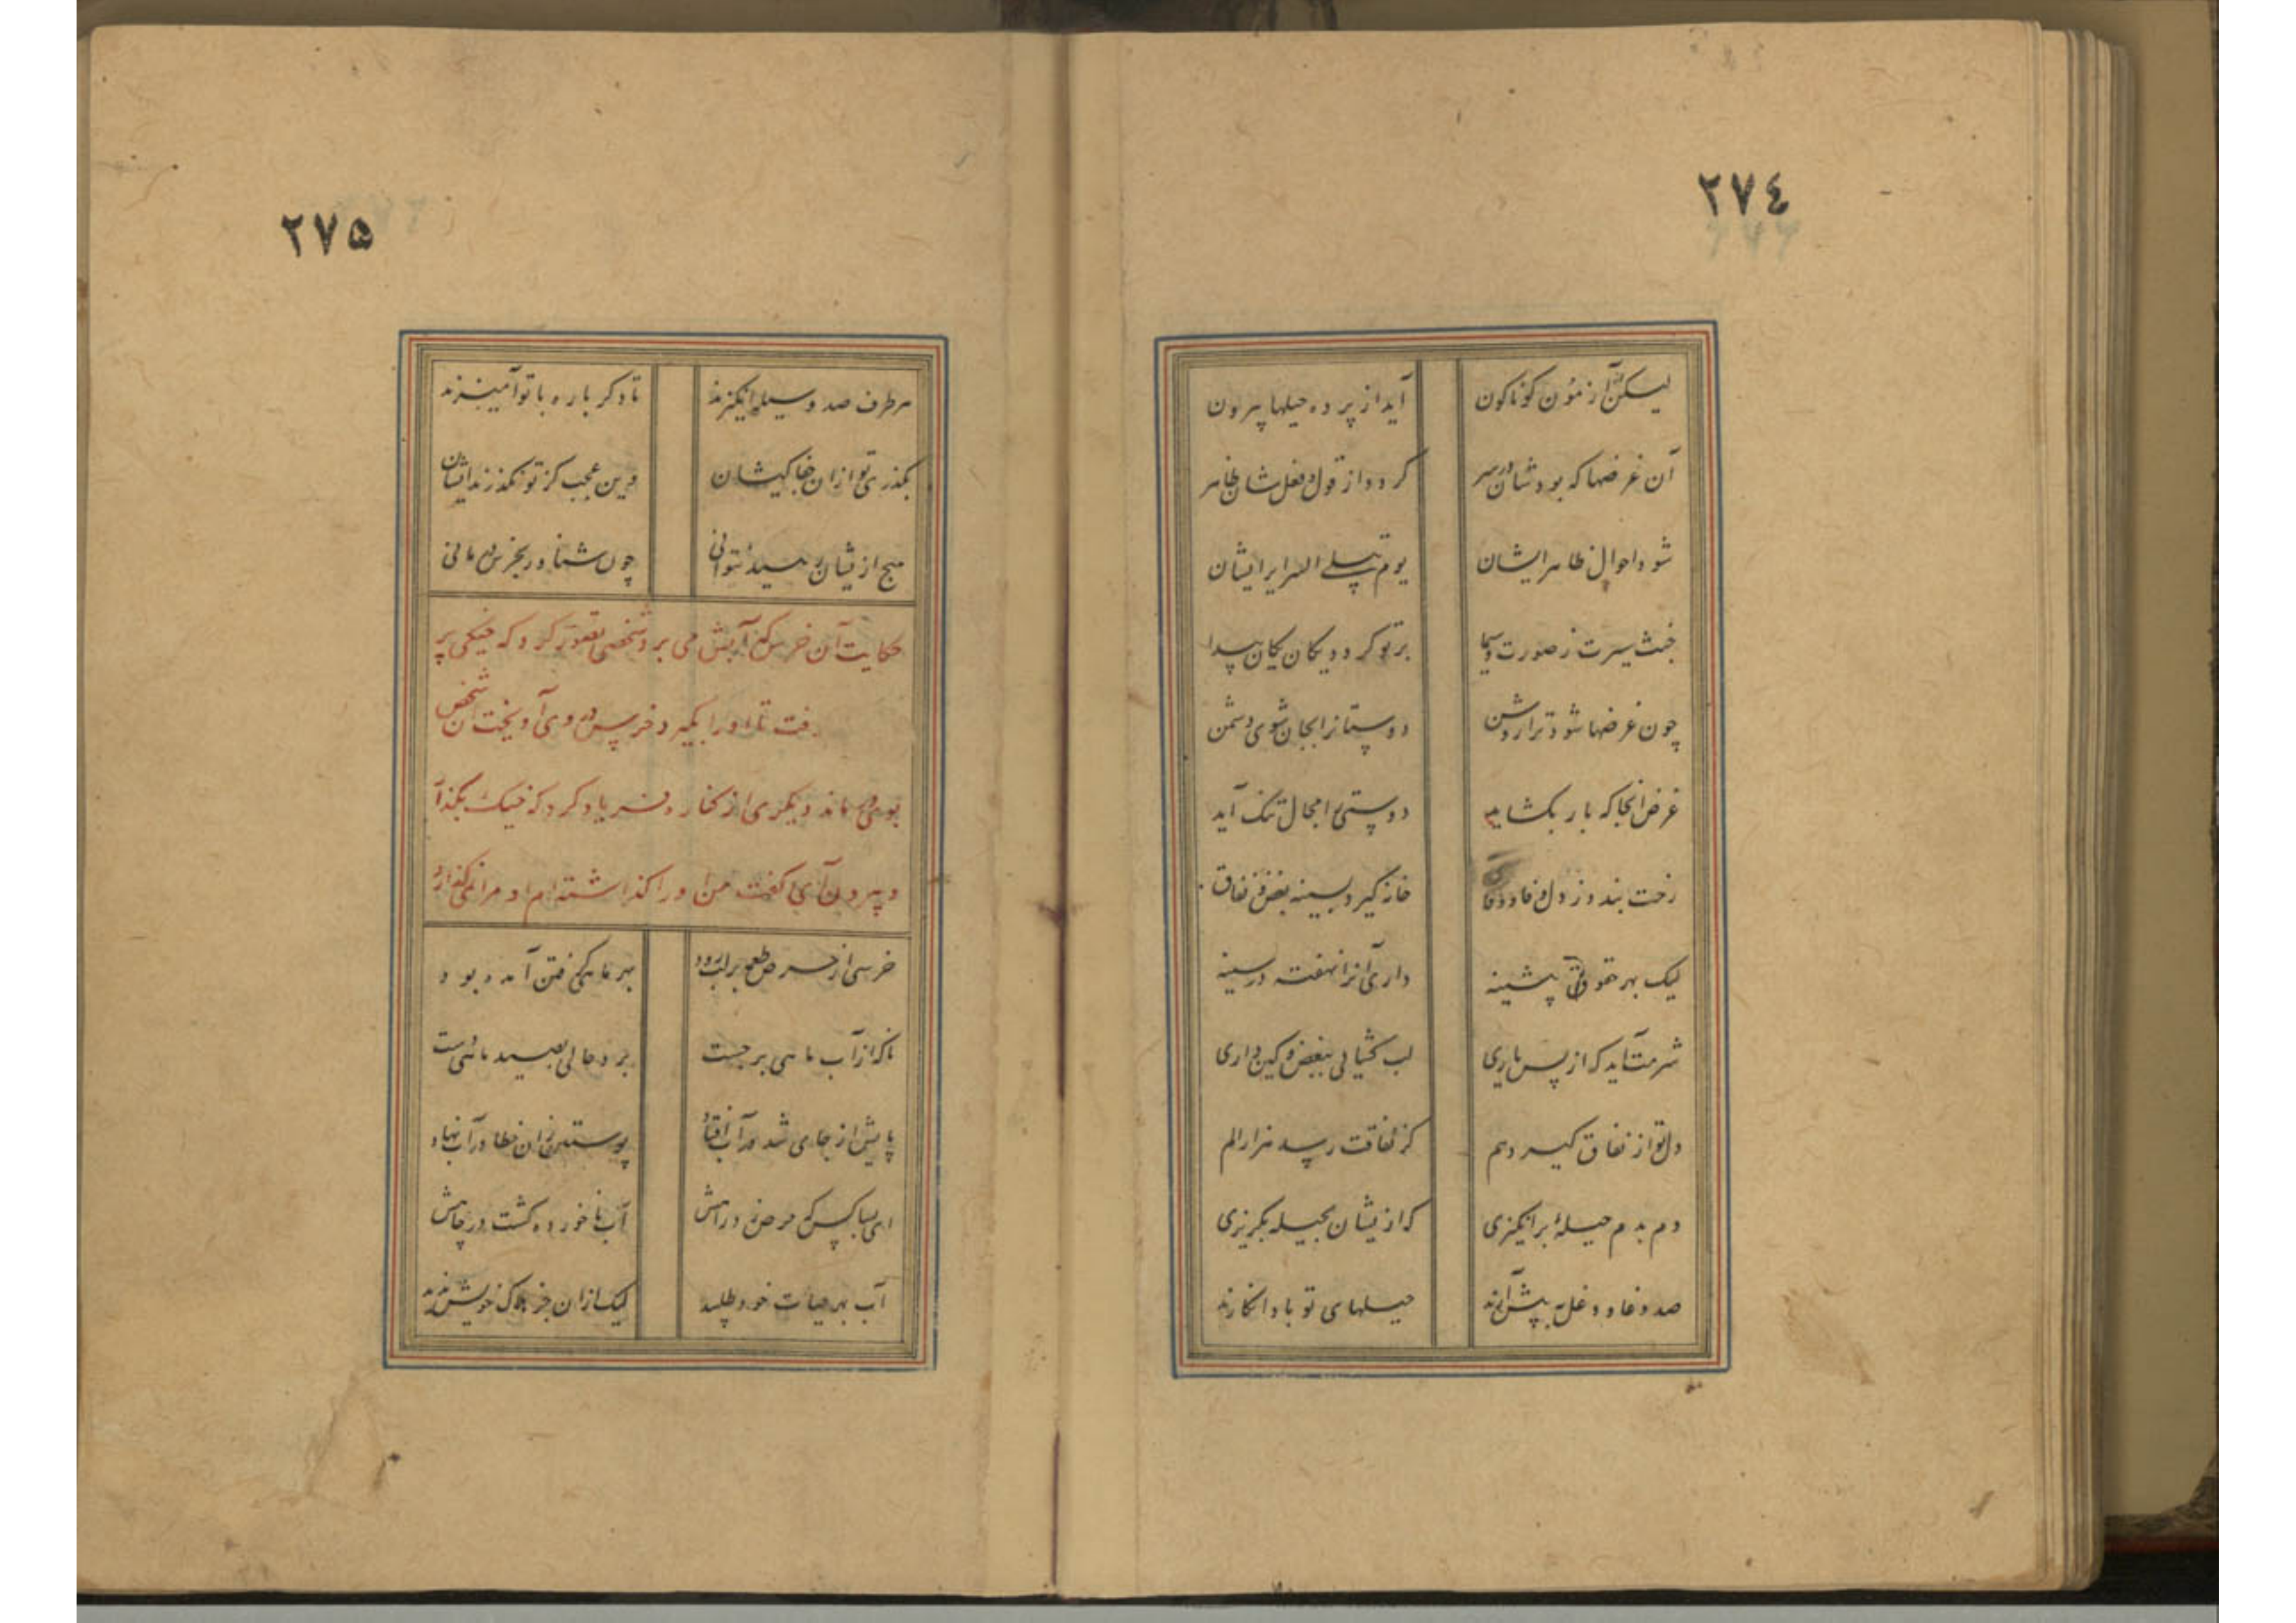 ٢٧٤
لیکن از آزمون کوناکون آید از پرده حیلها بیرون
آن غرضها که بودشان در سر کردد از قول و فعل شان ظاهر
شود احوال ظاهر ایشان یوم تبلی السرایر ایشان
خبث سیرت ز صورت و سیما بر تو کردد یکان یکان پیدا
چون غرضها شود ترا روشن دوستانرا بجان شوی دشمن
غرض آنجا که بار بکشاید دوستی را مجال تنک آید
رخت بندد ز دل وفا و وفاق خانه کیرد بسینه بغض و نفاق
لیک بهر حقوق پیشینه داری آنرا نهفته در سینه
شرمت آید که از پس یاری لب کشیایی ببغض و کین داری
دل تو از نفاق کیرد هم کز نفاقت رسد هزار الم
دم بدم حیلهٔ برانکیزی که ازیشان بحیله بکریزی
صد دغا و دغل به پیش آرند حیلهای تو باد انکارند
٢٧۵
هر طرف صد وسیله انکیزند تا دکر باره با تو آمیزند
بکذری تو ازان جفا کیشان وین عجب کز تو نکذرند ایشان
هیچ ازیشان برید نتوانی چون شنا ور بخرس در مانی
حکایت آن خرس که آبش می برد شخصی تصور کرد که خیکی پر
رفت تا او را بکیرد خرس در وی آویخت آن شخص
بوی در ماند دیکری از کنار فریاد کرد که خیک بکذار
و بیرون آی کفت من او را کذاشته ام او مرا نمی کذارد
خرسی از حرص طعمه بر لب رود بهر ماهی کرفتن آمده بود
ناکه از آب ماهی برجست برد حالی بصید ماهی دست
پایش از جای شد در آب افتاد پوستین زان خطا در آب نهاد
ای بسا کس که حرص زد راهش آب ناخورده کشت در چاهش
آب بهر حیات خود طلبید لیک ازان جز هلاک خویش ندید